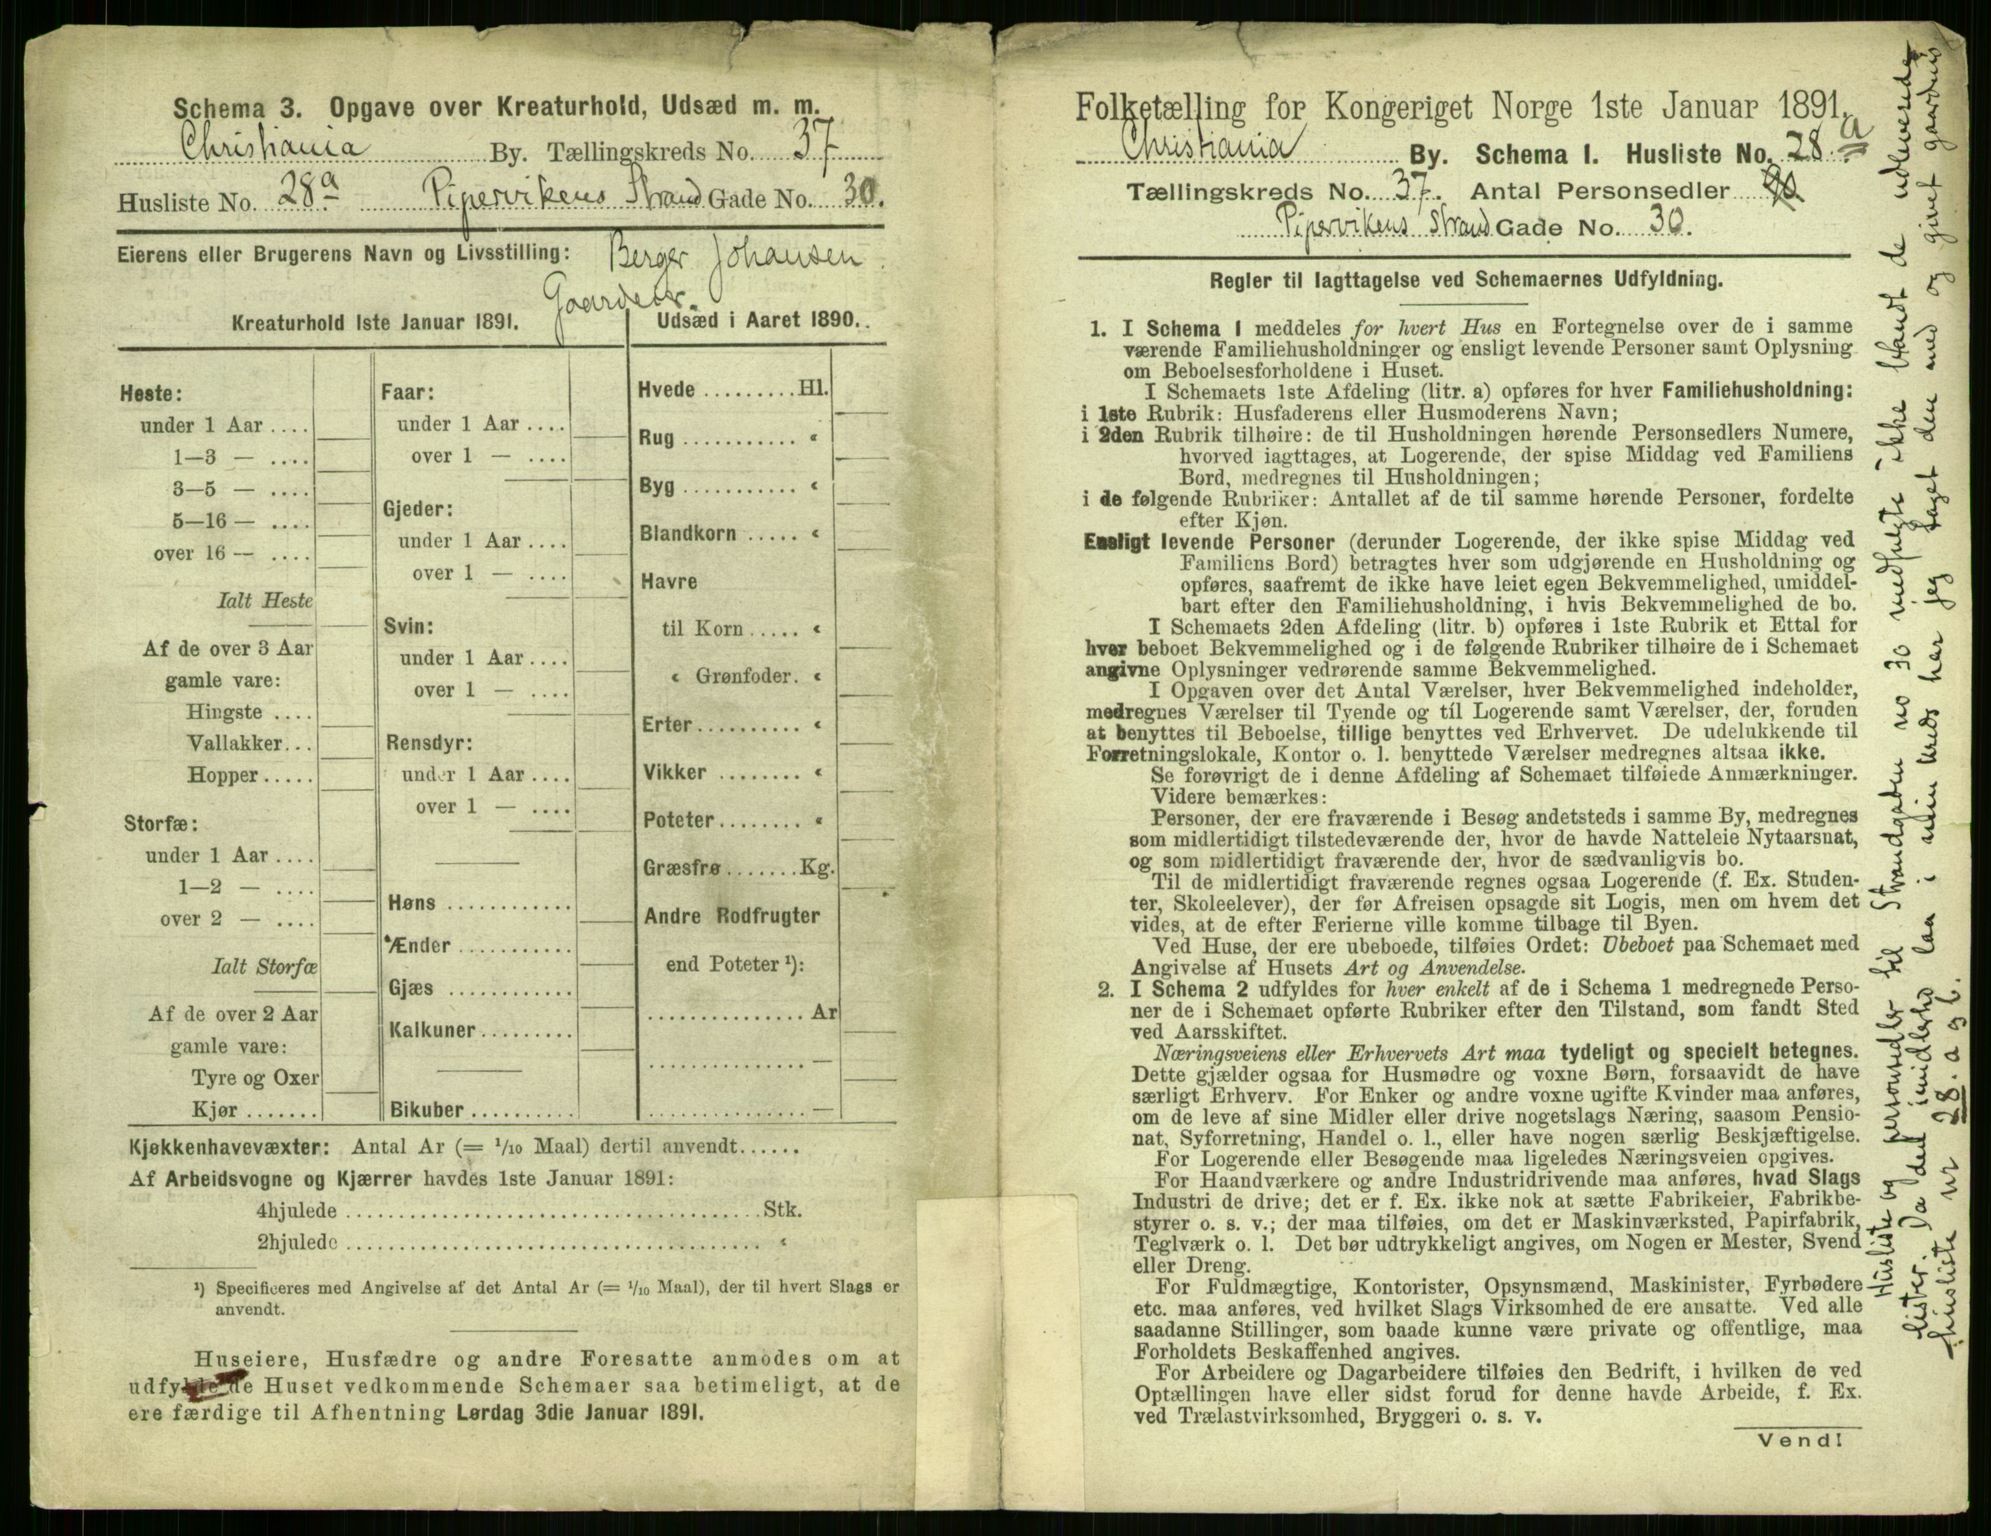 Schema 3. Opgave over Kreaturhold, Udsæd m. m.
Christiania By. Tællingskreds No. 37
Husliste No. 28a Pipervikens Strand Gade No. 30.
Eierens eller Brugerens Navn og Livsstilling: Berger Johansen
Gaardeier.
Kreaturhold 1ste Januar 1891.
Heste:
under 1 Aar ....
1—3 — ....
3—5 — ....
5—16 — ....
over 16 — ....
Ialt Heste
Af de over 3 Aar
gamle vare:
Hingste ....
Vallakker...
Hopper.....
Storfæ:
under 1 Aar ....
1—2 — ....
over 2 — ....
Ialt Storfæ
Af de over 2 Aar
gamle vare:
Tyre og Oxer
Kjør .......
Faar:
under 1 Aar ....
over 1 — ....
Gjeder:
under 1 Aar ....
over 1 — ....
Svin:
under 1 Aar ....
over 1 — ....
Rensdyr:
under 1 Aar ....
over 1 — ....
Høns ............
Ænder ...........
Gjæs ............
Kalkuner.........
Bikuber ..........
Udsæd i Aaret 1890..
Hvede ......... Hl.
Rug ........... «
Byg ........... «
Blandkorn ..... «
Havre
til Korn ..... «
« Grønfoder. «
Erter ......... «
Vikker ........ «
Poteter........ «
Græsfrø ....... Kg.
Andre Rodfrugter
end Poteter ¹):
............... Ar
............... —
............... —
Kjøkkenhavevæxter: Antal Ar (= 1/10 Maal) dertil anvendt......
Af Arbeidsvogne og Kjærrer havdes 1ste Januar 1891:
4hjulede ........................................ Stk.
2hjulede ........................................ «
¹) Specificeres med Angivelse af det Antal Ar (= 1/10 Maal), der til hvert Slags er
anvendt.
Huseiere, Husfædre og andre Foresatte anmodes om at
udfylde de Huset vedkommende Schemaer saa betimeligt, at de
ere færdige til Afhentning Lørdag 3die Januar 1891.
Folketælling for Kongeriget Norge 1ste Januar 1891.
Christiania By. Schema 1. Husliste No. 28a
Tællingskreds No. 37. Antal Personsedler
Pipervikens Strand Gade No. 30.
Regler til Iagttagelse ved Schemaernes Udfyldning.
1. I Schema 1 meddeles for hvert Hus en Fortegnelse over de i samme
værende Familiehusholdninger og ensligt levende Personer samt Oplysning
om Beboelsesforholdene i Huset.
I Schemaets 1ste Afdeling (litr. a) opføres for hver Familiehusholdning:
i 1ste Rubrik: Husfaderens eller Husmoderens Navn;
i 2den Rubrik tilhøire: de til Husholdningen hørende Personsedlers Numere,
hvorved iagttages, at Logerende, der spise Middag ved Familiens
Bord, medregnes til Husholdningen;
i de følgende Rubriker: Antallet af de til samme hørende Personer, fordelte
efter Kjøn.
Ensligt levende Personer (derunder Logerende, der ikke spise Middag ved
Familiens Bord) betragtes hver som udgjørende en Husholdning og
opføres, saafremt de ikke have leiet egen Bekvemmelighed, umiddel-
bart efter den Familiehusholdning, i hvis Bekvemmelighed de bo.
I Schemaets 2den Afdeling (litr. b) opføres i 1ste Rubrik et Ettal for
hver beboet Bekvemmelighed og i de følgende Rubriker tilhøire de i Schemaet
angivne Oplysninger vedrørende samme Bekvemmelighed.
I Opgaven over det Antal Værelser, hver Bekvemmelighed indeholder,
medregnes Værelser til Tyende og til Logerende samt Værelser, der, foruden
at benyttes til Beboelse, tillige benyttes ved Erhvervet. De udelukkende til
Forretningslokale, Kontor o. l. benyttede Værelser medregnes altsaa ikke.
Se forøvrigt de i denne Afdeling af Schemaet tilføiede Anmærkninger.
Videre bemærkes:
Personer, der ere fraværende i Besøg andetsteds i samme By, medregnes
som midlertidigt tilstedeværende der, hvor de havde Natteleie Nytaarsnat,
og som midlertidigt fraværende der, hvor de sædvanligvis bo.
Til de midlertidigt fraværende regnes ogsaa Logerende (f. Ex. Studen-
ter, Skoleelever), der før Afreisen opsagde sit Logis, men om hvem det
vides, at de efter Ferierne ville komme tilbage til Byen.
Ved Huse, der ere ubeboede, tilføies Ordet: Ubeboet paa Schemaet med
Angivelse af Husets Art og Anvendelse.
2. I Schema 2 udfyldes for hver enkelt af de i Schema 1 medregnede Perso-
ner de i Schemaet opførte Rubriker efter den Tilstand, som fandt Sted
ved Aarsskiftet.
Næringsveiens eller Erhvervets Art maa tydeligt og specielt betegnes.
Dette gjælder ogsaa for Husmødre og voxne Børn, forsaavidt de have
særligt Erhverv. For Enker og andre voxne ugifte Kvinder maa anføres,
om de leve af sine Midler eller drive nogetslags Næring, saasom Pensio-
nat, Syforretning, Handel o. l., eller have nogen særlig Beskjæftigelse.
For Logerende eller Besøgende maa ligeledes Næringsveien opgives.
For Haandværkere og andre Industridrivende maa anføres, hvad Slags
Industri de drive; det er f. Ex. ikke nok at sætte Fabrikeier, Fabrikbe-
styrer o. s. v.; der maa tilføies, om det er Maskinværksted, Papirfabrik,
Teglværk o. l. Det bør udtrykkeligt angives, om Nogen er Mester, Svend
eller Dreng.
For Fuldmægtige, Kontorister, Opsynsmænd, Maskinister, Fyrbødere
etc. maa anføres, ved hvilket Slags Virksomhed de ere ansatte. Ved alle
saadanne Stillinger, som baade kunne være private og offentlige, maa
Forholdets Beskaffenhed angives.
For Arbeidere og Dagarbeidere tilføies den Bedrift, i hvilken de ved
Optællingen have eller sidst forud for denne havde Arbeide, f. Ex.
ved Trælastvirksomhed, Bryggeri o. s. v.
Vend!
Husliste og personsedler til Strandgaden no 30 medfulgte ikke blandt de udleverede
lister. Da den imidlertid laa i min kreds har jeg taget den med og givet gaardens
husliste nr 28. a og b.